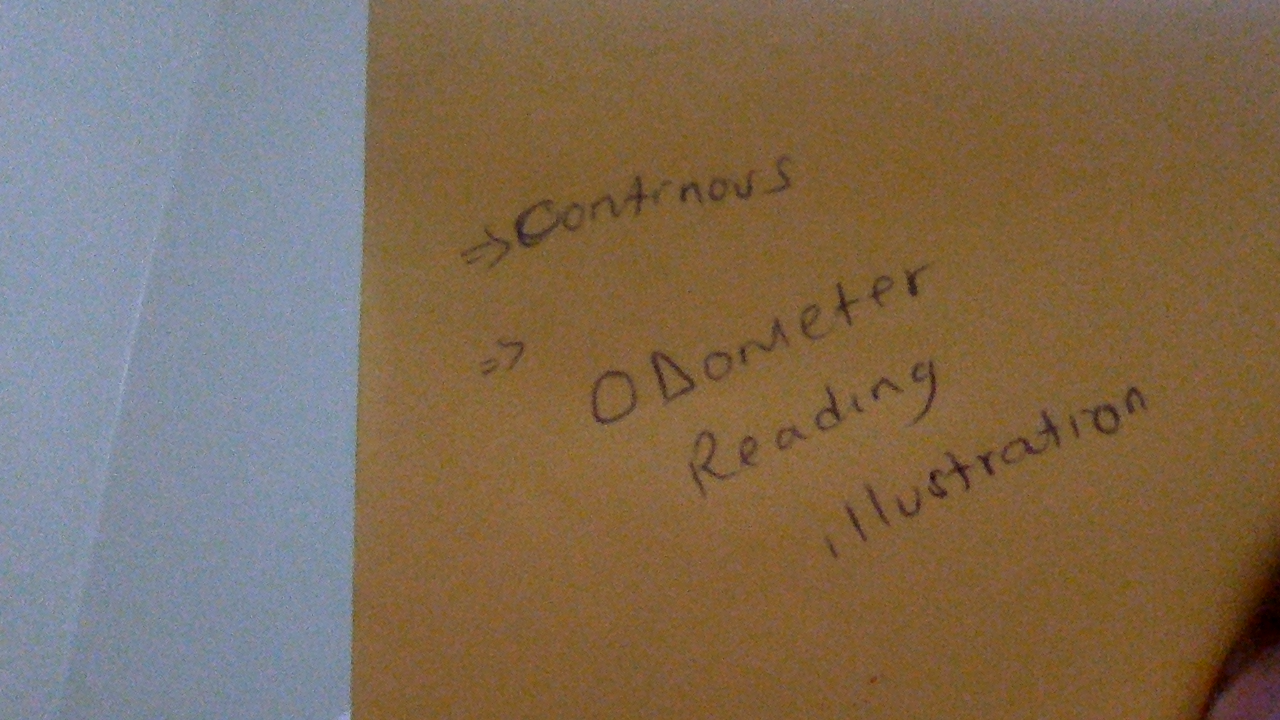 ⇒ Continous
⇒ ODometer
Reading
illustration